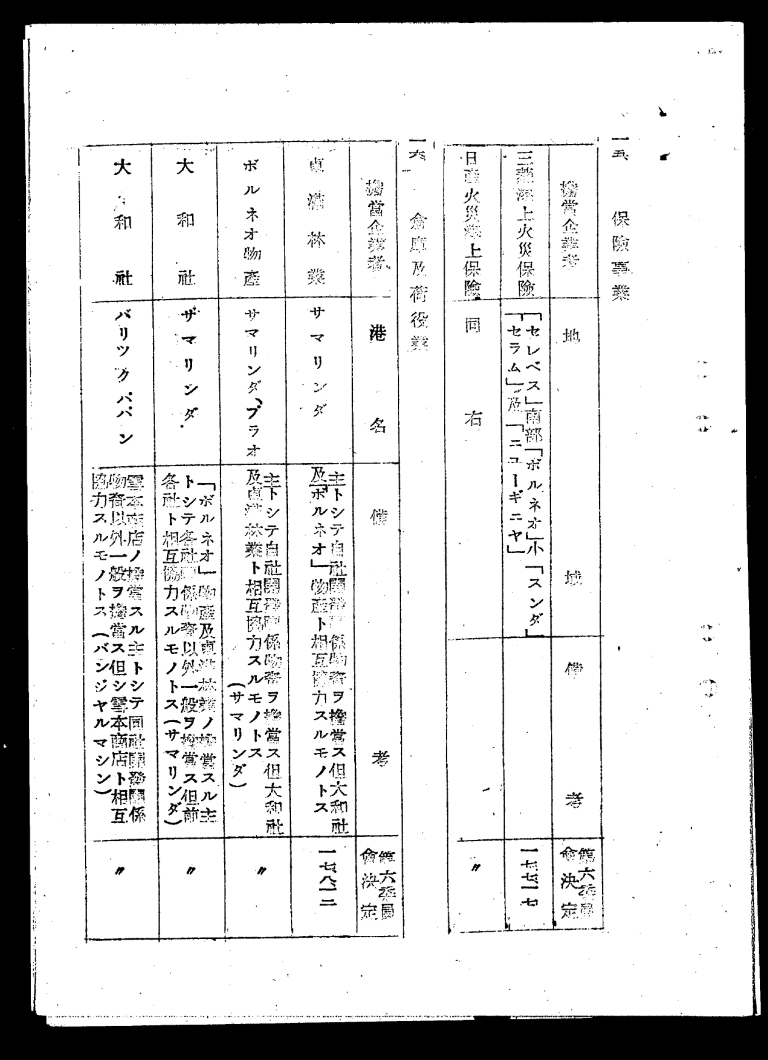 一五、保險事業
擔當企業者 地域 備考 第六委員會決定
三菱海上火災保險 「セレベス」南部「ボルネオ」小「スンダ」
「セラム」及「ニユーギニヤ」 一七、七、一七
日産火災海上保險 同右 〃
一六、倉庫及荷役業
擔當企業者 港名 備考 第六委員會決定
東洋林業 サマリンダ 主トシテ自社開發關係物資ヲ擔當ス但大和社
及「ボルネオ」物產ト相互協力スルモノトス 一七、八、一二
ボルネオ物產 サマリンダ、ブラオ 主トシテ自社開發關係物資ヲ擔當ス但大和社
及東洋林業ト相互協力スルモノトス
(サマリンダ) 〃
大和社 サマリンダ 「ボルネオ」物產及東洋林業ノ擔當スル主
トシテ各社關係物資以外一般ヲ擔當ス但前
各社ト相互協力スルモノトス(サマリンダ) 〃
大和社 バリツクパパン 本商店ノ擔當スル主トシテ同社開發關係
物資以外一般ヲ擔當ス但シ本商店ト相互
協力スルモノトス(バンジヤルマシン) 〃